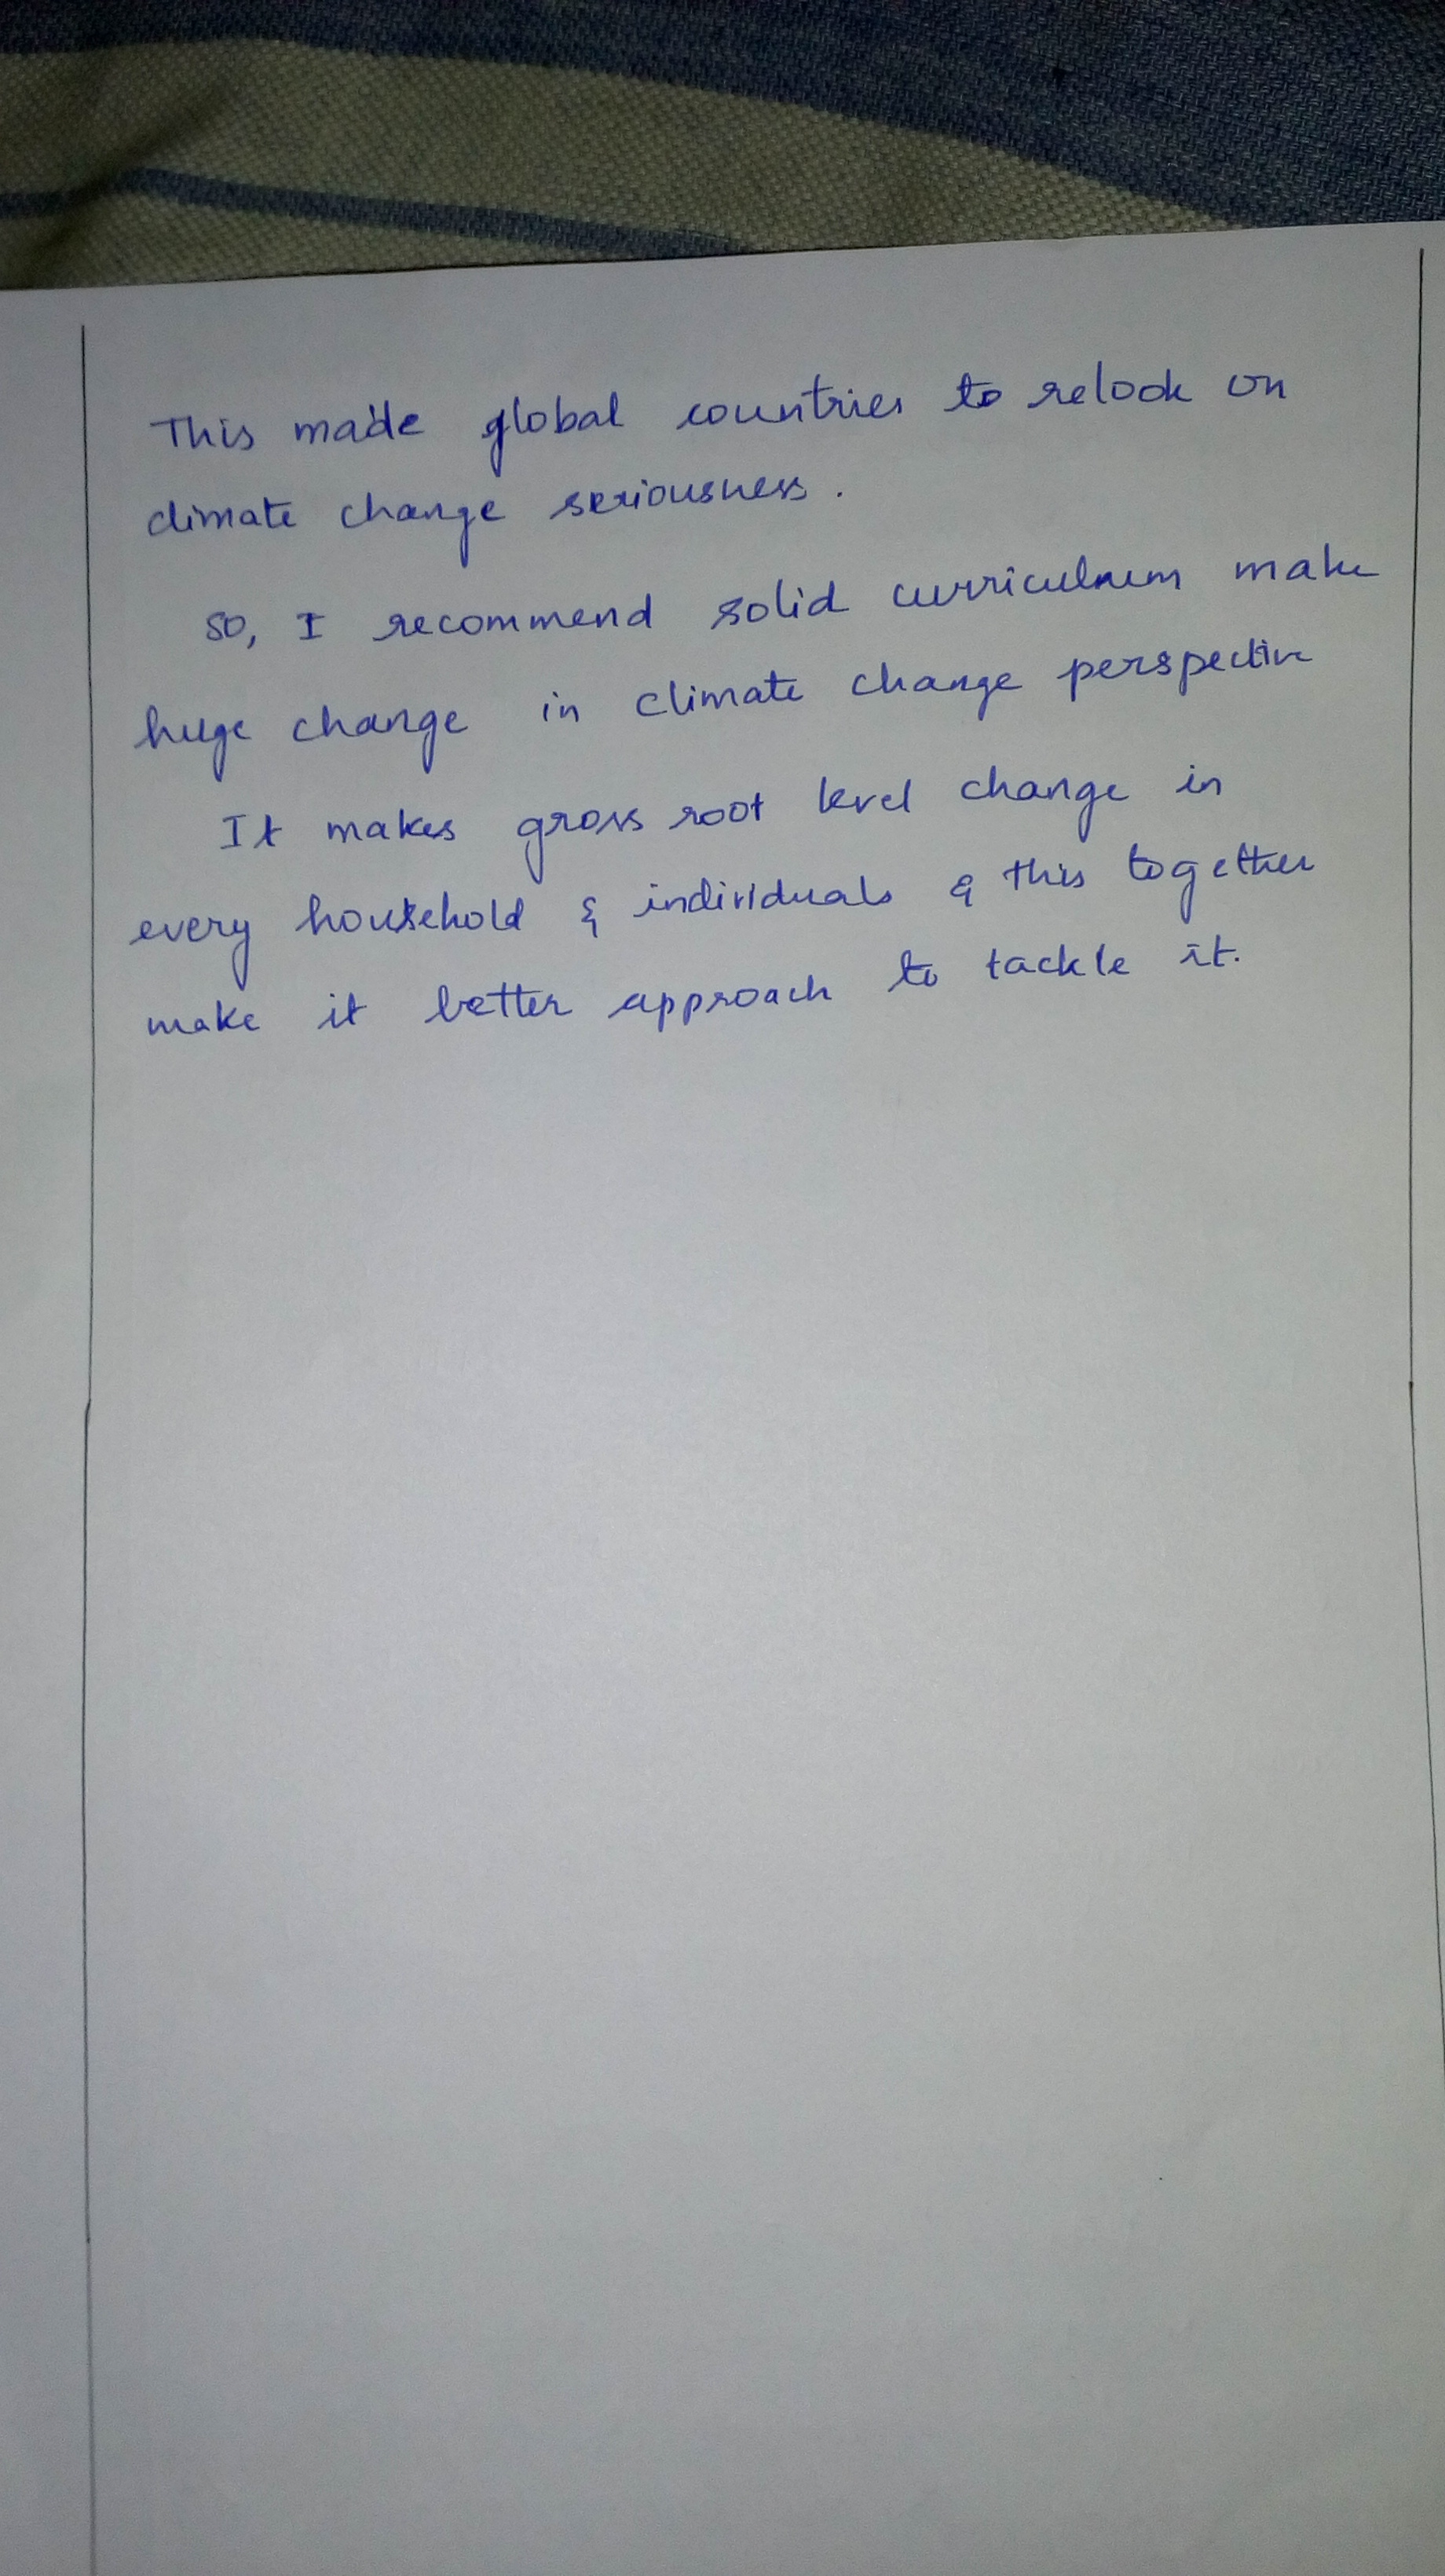 This made global countries to relook on
climate change seriousness.
so, I recommend solid curriculum make
huge change in climate change perspective
It makes gross root level change in
every household & individuals & this together
make it better approach to tackle it.